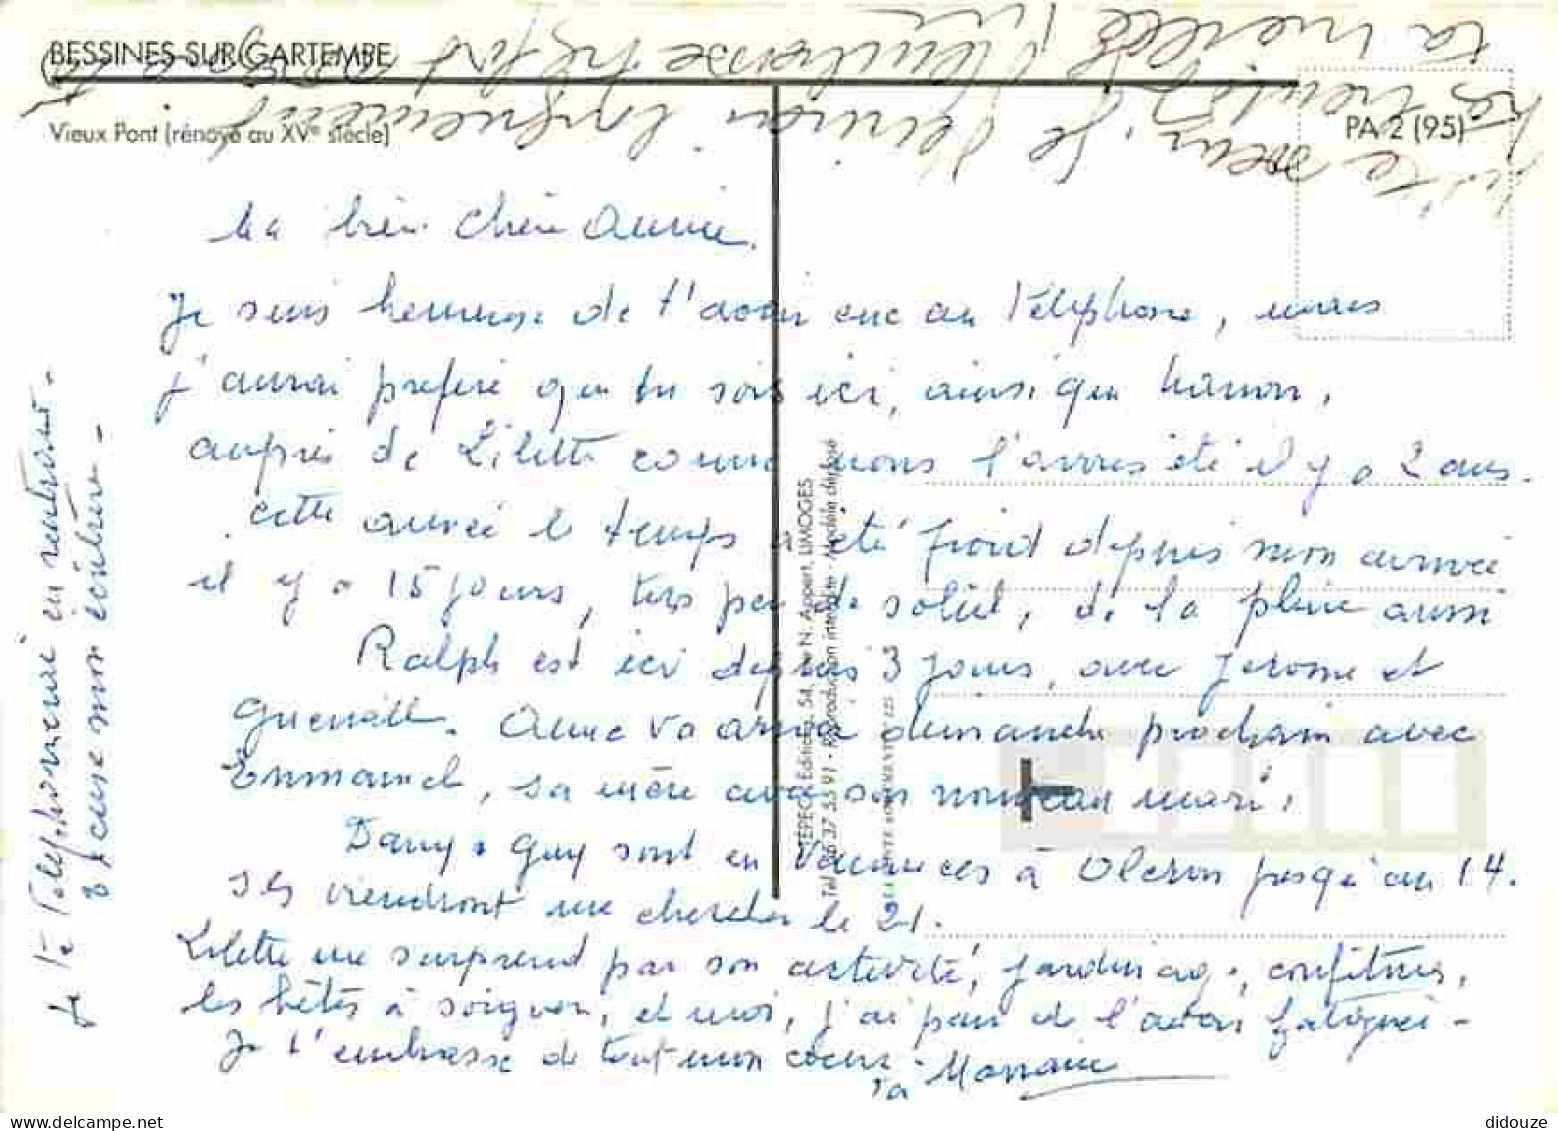 BESSINES-SUR-GARTEMPE
Vieux Pont (rénové au XVe siècle)
PA 2 (95)
Ma bien chère Annie.
Je suis heureuse de t'avoir eue au Téléphone, mais
j'aurai préféré que tu sois ici, ainsi que Manon,
auprès de Lilette comme nous l'avons été il y a 2 ans.
cette année le temps a été froid depuis mon arrivée
il y a 15 jours, très peu de soleil, de la pluie aussi
Ralph est ici depuis 3 jours, avec Jerome et
Gwenaëlle. Anne va arriver dimanche prochain avec
Emmanuel, sa mère avec son nouveau mari,
Dany & Guy sont en vacances à Oleron jusqu'au 14.
Ils viendront me chercher le 21.
Lilette me surprend par son activité, jardinage, confitures,
les bêtes à soigner, et moi, j'ai peur de l'avoir fatiguée -
Je t'embrasse de tout mon coeur
ta Marraine
Je te Telephonerai en rentrant -
& ferme mon écriture -
Editions, 5d, rue N. Appert, LIMOGES
Reproduction interdite - Modèle déposé
petite soeur. Je
T
didouze